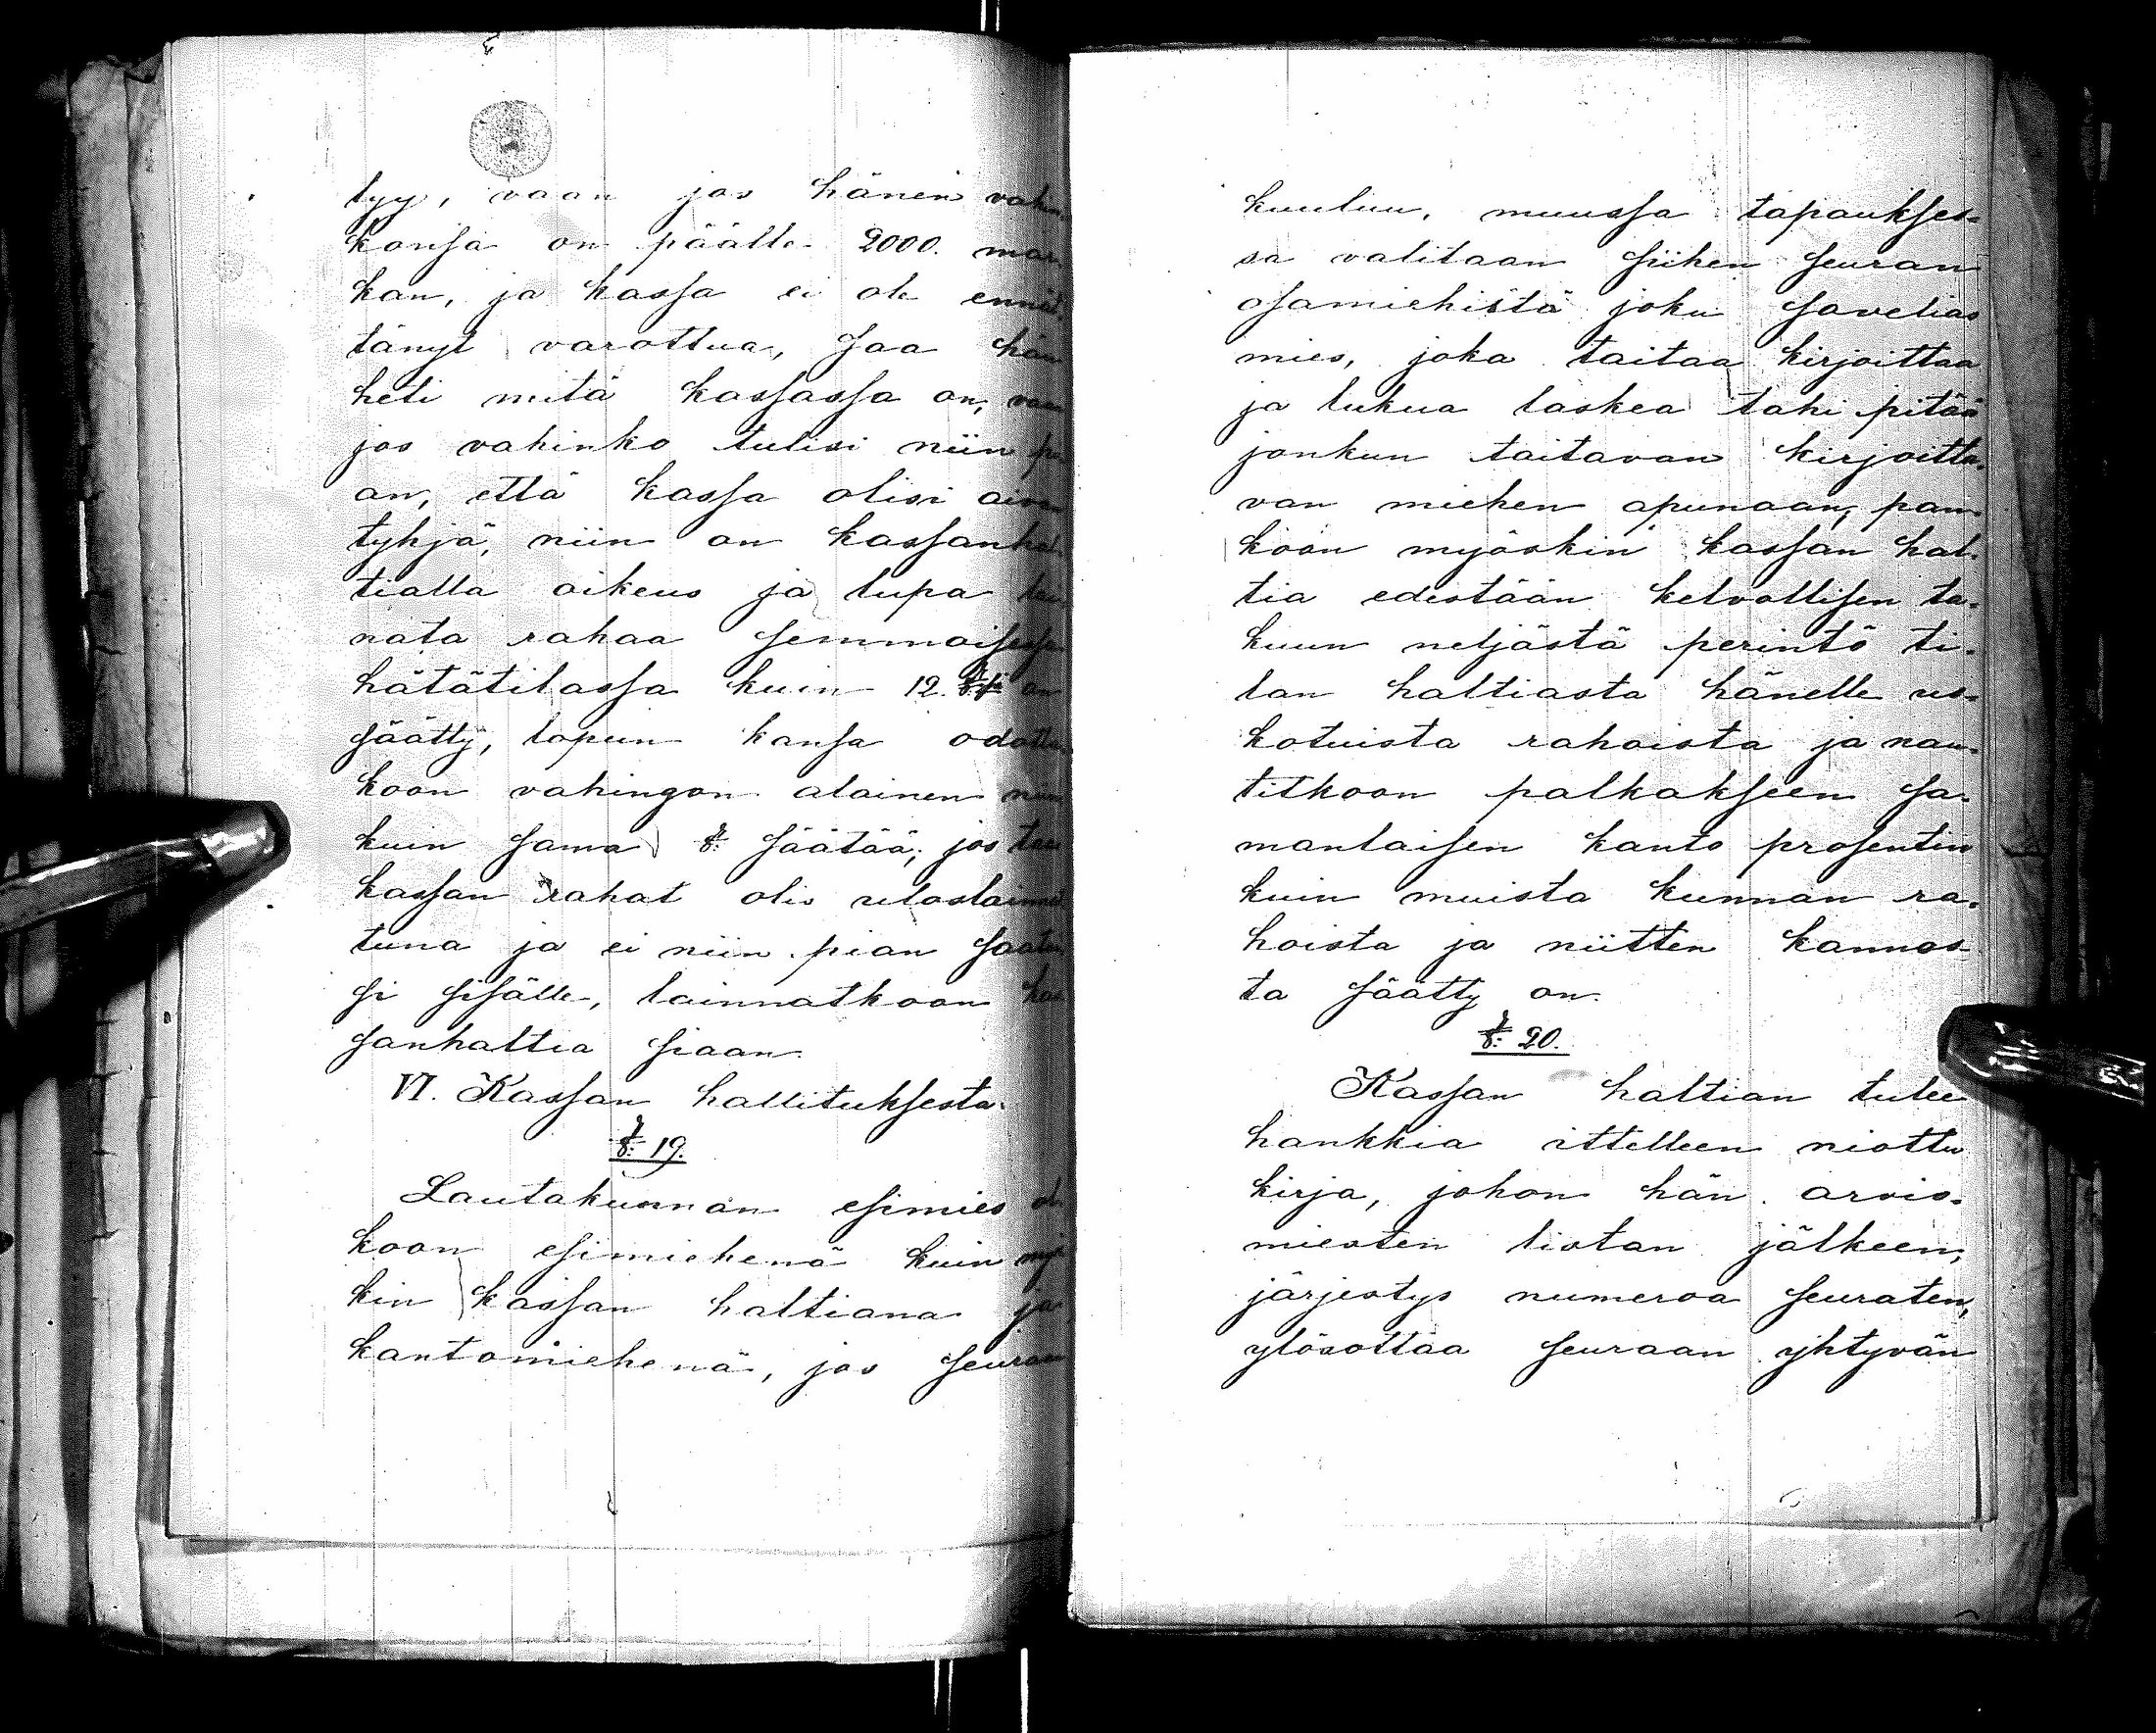 tyy, vaan jos hänen vahin-
konsa on päälle 2000. mar-
kan, ja kassa ei ole ennät-
tänyt varottua, saa hän
heti mitä kassassa on, vaan
jos vahinko tulisi niin pi-
an, että kassa olisi aivan
tyhjä, niin on kassanhal-
tialla oikeus ja lupa lai-
nata rahaa semmoisessa
hätätilassa kuin 12. § on
säätty, lopun kansa odotta-
koon vahingon alainen niin
kuin sama §: säätää; jos taas
kassan rahat olis uloslainat-
tuna ja ei niin pian saatai-
si sisälle, lainnatkoon kas-
sanhaltia siaan.
VI. Kassan hallituksesta.
§: 19.
Lautakunnan esimies ol-
koon esimiehenä kuin myös-
kin kassan haltiana ja
kantomiehenä, jos seuraan
kuuluu, muussa tapaukses-
sa valitaan siihen seuran
osamiehistä joku savelias
mies, joka taitaa kirjoittaa
ja lukua laskea tahi pitää
jonkun taitavan kirjoitta-
van miehen apunaan, pan-
koon myöskin kassan hal-
tia edestään kelvollisen ta-
kuun neljästä perintö ti-
lan haltiasta hänelle us-
kotuista rahoista ja nau-
titkoon palkakseen sa-
manlaisen kanto prosentin
kuin muista kunnan ra-
hoista ja niitten kannos-
ta säätty on.
§: 20.
Kassan haltian tulee
hankkia ittelleen niottu
kirja, johon hän arvio-
miesten listan jälkeen,
järjestys numeroa seuraten,
ylösottaa seuraan yhtyvän